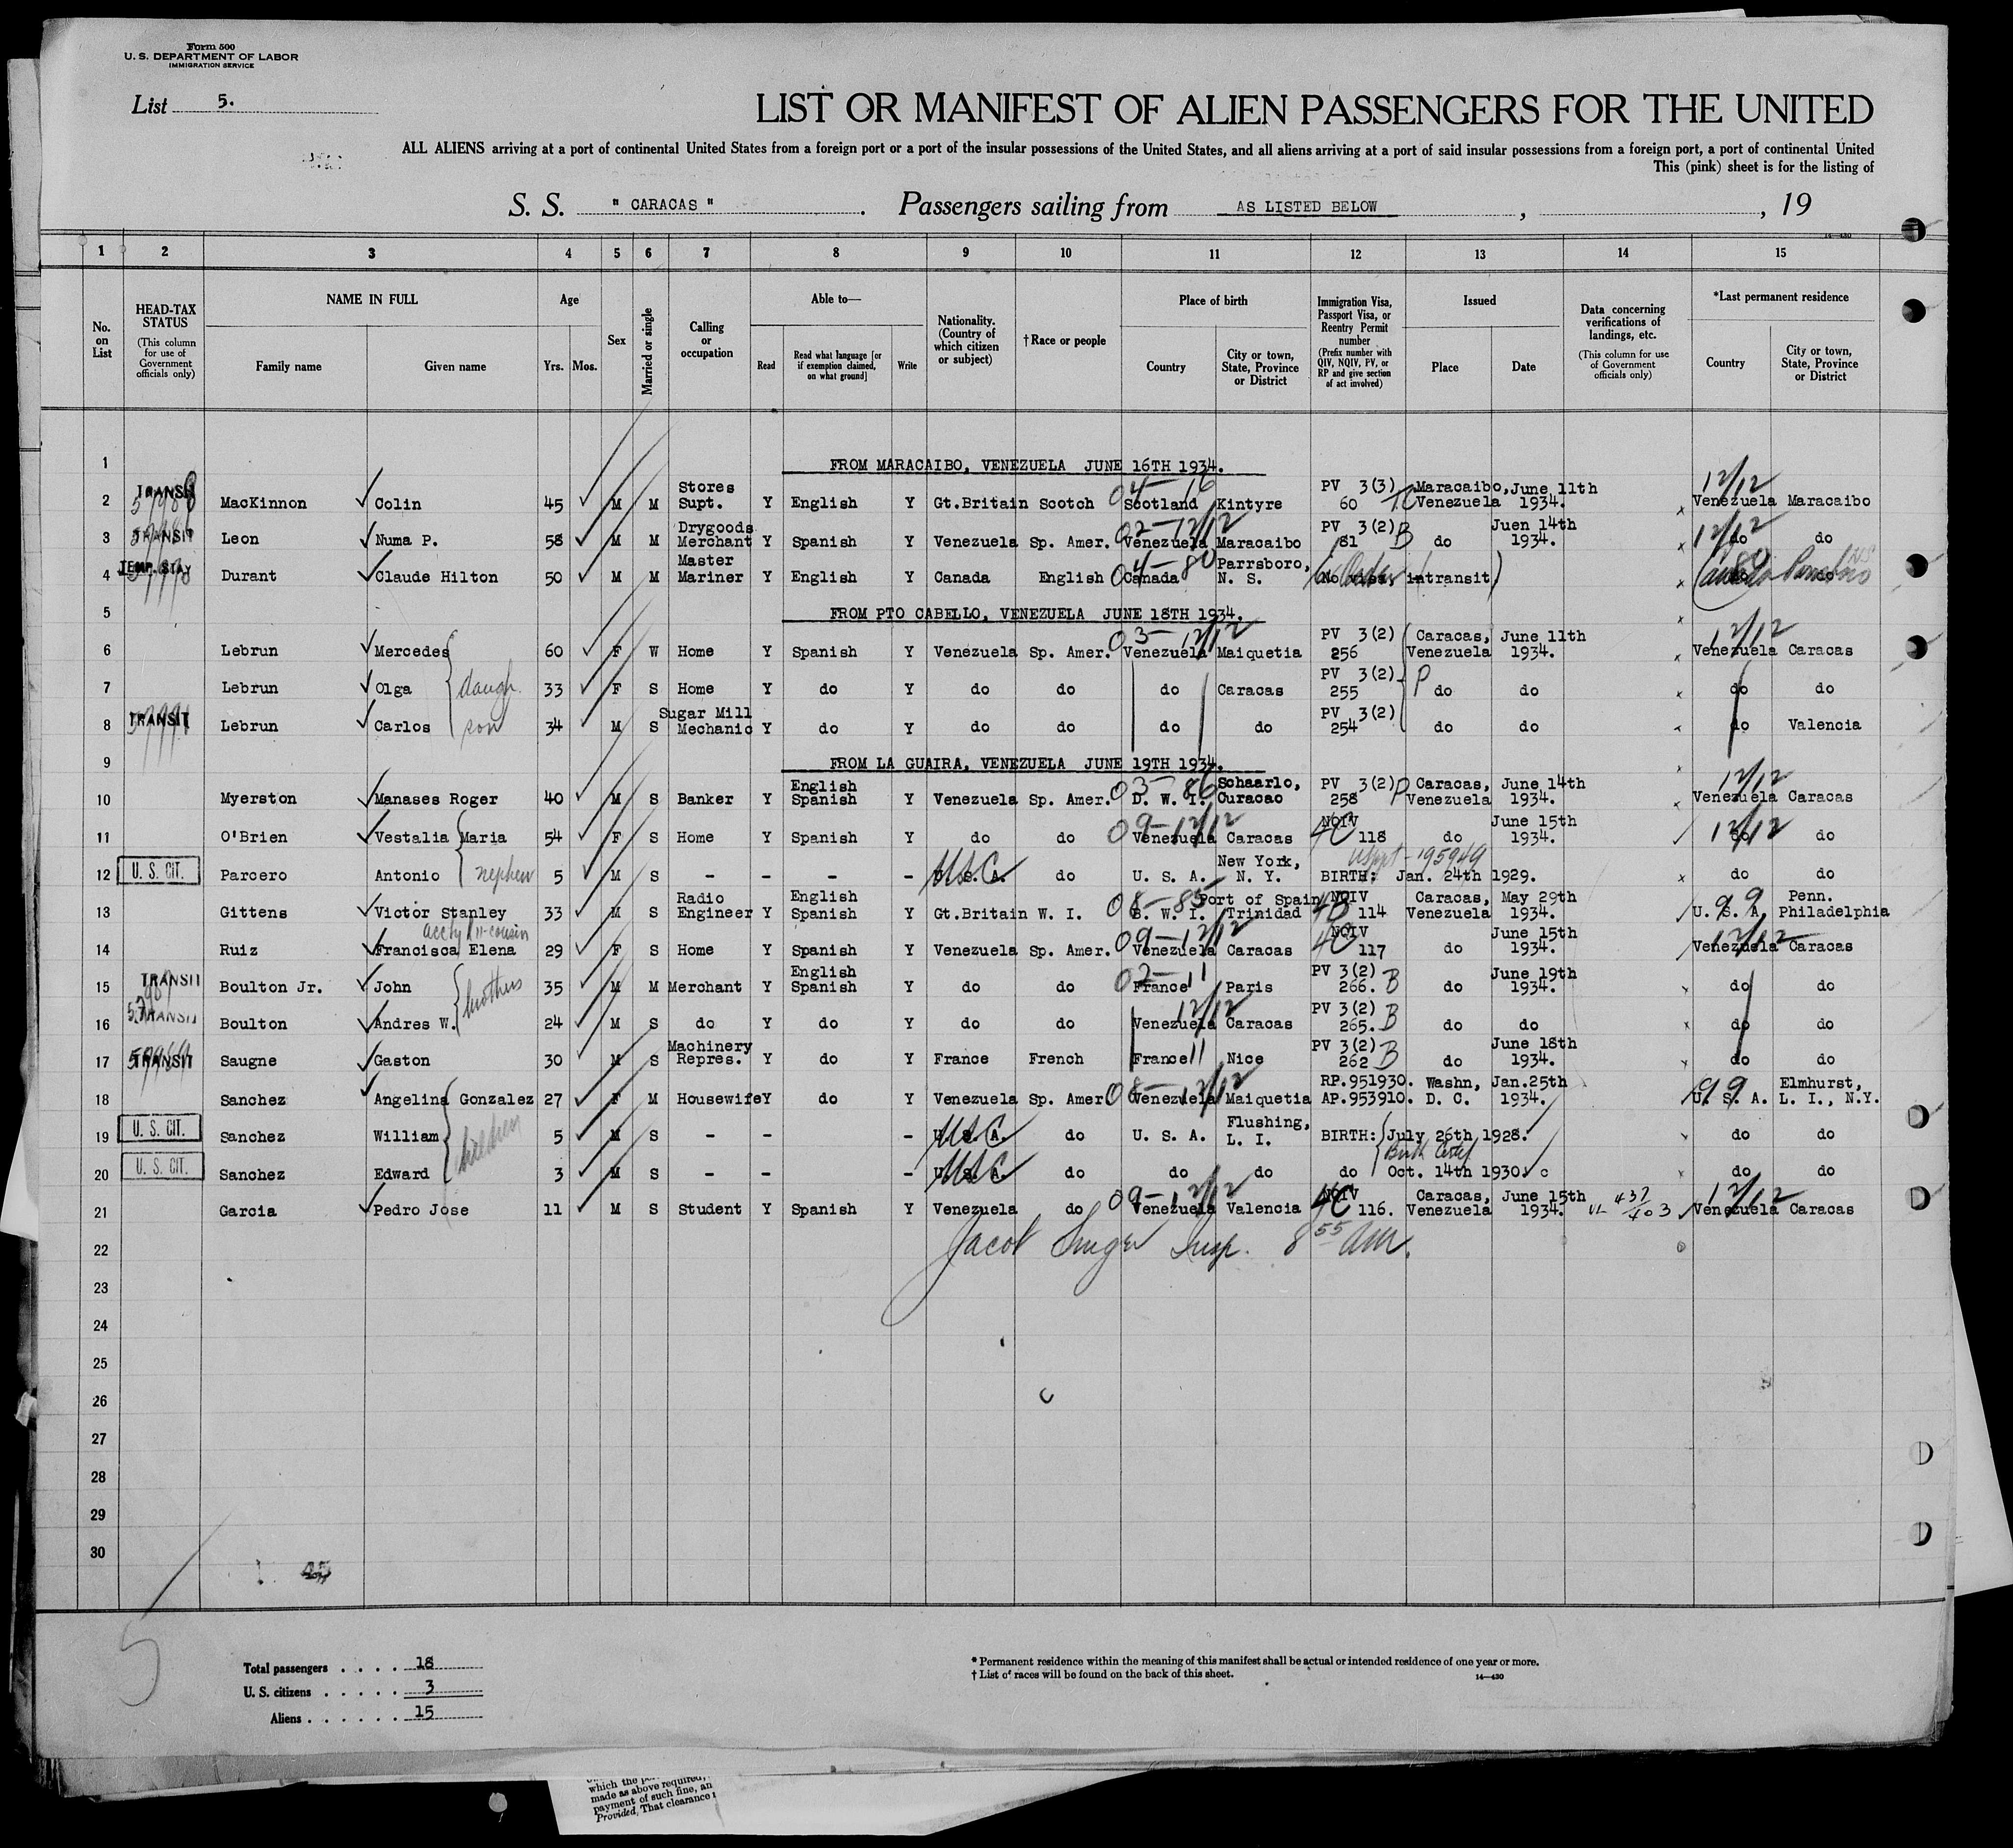 Form 500
U. S. DEPARTMENT OF LABOR
IMMIGRATION SERVICE
List 5.
LIST OR MANIFEST OF ALIEN PASSENGERS FOR THE UNITED
ALL ALIENS arriving at a port of continental United States from a foreign port or a port of the insular possessions of the United States, and all aliens arriving at a port of said insular possessions from a foreign port, a port of continental United
This (pink) sheet is for the listing of
S. S. " CARACAS " . Passengers sailing from AS LISTED BELOW , , 19
14—430
1 2 3 4 5 6 7 8 9 10 11 12 13 14 15
No. on List
HEAD-TAX STATUS (This column for use of Government officials only)
NAME IN FULL Family name Given name
Age Yrs. Mos.
Sex
Married or single
Calling or occupation
Able to— Read Read what language [or if exemption claimed, on what ground] Write
Nationality. (Country of which citizen or subject)
†Race or people
Place of birth Country City or town, State, Province or District
Immigration Visa, Passport Visa, or Reentry Permit number (Prefix number with QIV, NQIV, PV, or RP and give section of act involved)
Issued Place Date
Data concerning verifications of landings, etc. (This column for use of Government officials only)
*Last permanent residence Country City or town, State, Province or District
1 FROM MARACAIBO, VENEZUELA JUNE 16TH 1934.
2 TRANSIT MacKinnon Colin 45 M M Stores Supt. Y English Y Gt.Britain Scotch 04-16 Scotland Kintyre PV 3(3) 60 Maracaibo, Venezuela June 11th 1934. 12/12 Venezuela Maracaibo
3 TRANSIT Leon Numa P. 58 M M Drygoods Merchant Y Spanish Y Venezuela Sp. Amer. 02-12/12 Venezuela Maracaibo PV 3(2) 81 B do Juen 14th 1934. 12/12 do do
4 TEMP. STAY Durant Claude Hilton 50 M M Master Mariner Y English Y Canada English 04-80 Canada Parrsboro, N. S. No visa, intransit) 80
5 FROM PTO CABELLO, VENEZUELA JUNE 18TH 1934.
6 Lebrun Mercedes 60 F W Home Y Spanish Y Venezuela Sp. Amer. 03-12/12 Venezuela Maiquetia PV 3(2) 256 Caracas, Venezuela June 11th 1934. 12/12 Venezuela Caracas
7 Lebrun Olga daugh. 33 F S Home Y do Y do do do Caracas PV 3(2) 255 P do do do do
8 TRANSIT Lebrun Carlos son 34 M S Sugar Mill Mechanic Y do Y do do do do PV 3(2) 254 do do do Valencia
9 FROM LA GUAIRA, VENEZUELA JUNE 19TH 1934.
10 Myerston Manases Roger 40 M S Banker Y English Spanish Y Venezuela Sp. Amer. 03-86 D. W. I. Schaarlo, Curacao PV 3(2) 258 P Caracas, Venezuela June 14th 1934. 12/12 Venezuela Caracas
11 O'Brien Vestalia Maria 54 F S Home Y Spanish Y do do 09-12/12 Venezuela Caracas NQIV 4C 118 do June 15th 1934. 12/12 do do
12 U. S. CIT. Parcero Antonio nephew 5 M S - - - - U. S. A. USC do U. S. A. New York, N. Y. BIRTH: Jan. 24th 1929. USppt-195949 do do
13 Gittens Victor Stanley 33 M S Radio Engineer Y English Spanish Y Gt.Britain W. I. 08-85 B. W. I. Port of Spain Trinidad NQIV 4B 114 Caracas, Venezuela May 29th 1934. 99 U. S. A. Penn. Philadelphia
14 Ruiz Francisca Elena 29 F S Home Y Spanish Y Venezuela Sp. Amer. 09-12/12 Venezuela Caracas NQIV 4C 117 do June 15th 1934. 12/12 Venezuela Caracas
15 TRANSIT Boulton Jr. John brothers 35 M M Merchant Y English Spanish Y do do 02-11 France Paris PV 3(2) 266. B do June 19th 1934. do do
16 TRANSIT Boulton Andres W. 24 M S do Y do Y do do 12/12 Venezuela Caracas PV 3(2) 265. B do do do do
17 TRANSIT Saugne Gaston 30 M S Machinery Repres. Y do Y France French France 11 Nice PV 3(2) 262 B do June 18th 1934. do do
18 Sanchez Angelina Gonzalez 27 F M Housewife Y do Y Venezuela Sp. Amer. 08-12/12 Venezuela Maiquetia RP.951930. AP.953910. Washn, D. C. Jan.25th 1934. 99 U. S. A. Elmhurst, L. I., N.Y.
19 U. S. CIT. Sanchez William children 5 M S - - - U. S. A. USC do U. S. A. Flushing, L. I. BIRTH: July 26th 1928. do do
20 U. S. CIT. Sanchez Edward 3 M S - - - U. S. A. USC do do do do Birth Certf Oct. 14th 1930. do do
21 Garcia Pedro Jose 11 M S Student Y Spanish Y Venezuela do 09-12/12 Venezuela Valencia NQIV 4C 116. Caracas, Venezuela June 15th 1934. 437/403 12/12 Venezuela Caracas
22 Jacob Insp. 8 55 AM.
23
24
25
26
27
28
29
30
5
Total passengers . . . . 18
U. S. citizens . . . . . 3
Aliens . . . . . . 15
* Permanent residence within the meaning of this manifest shall be actual or intended residence of one year or more.
† List of races will be found on the back of this sheet.
14—430
made as above required,
payment of such fine, an
Provided, That clearance